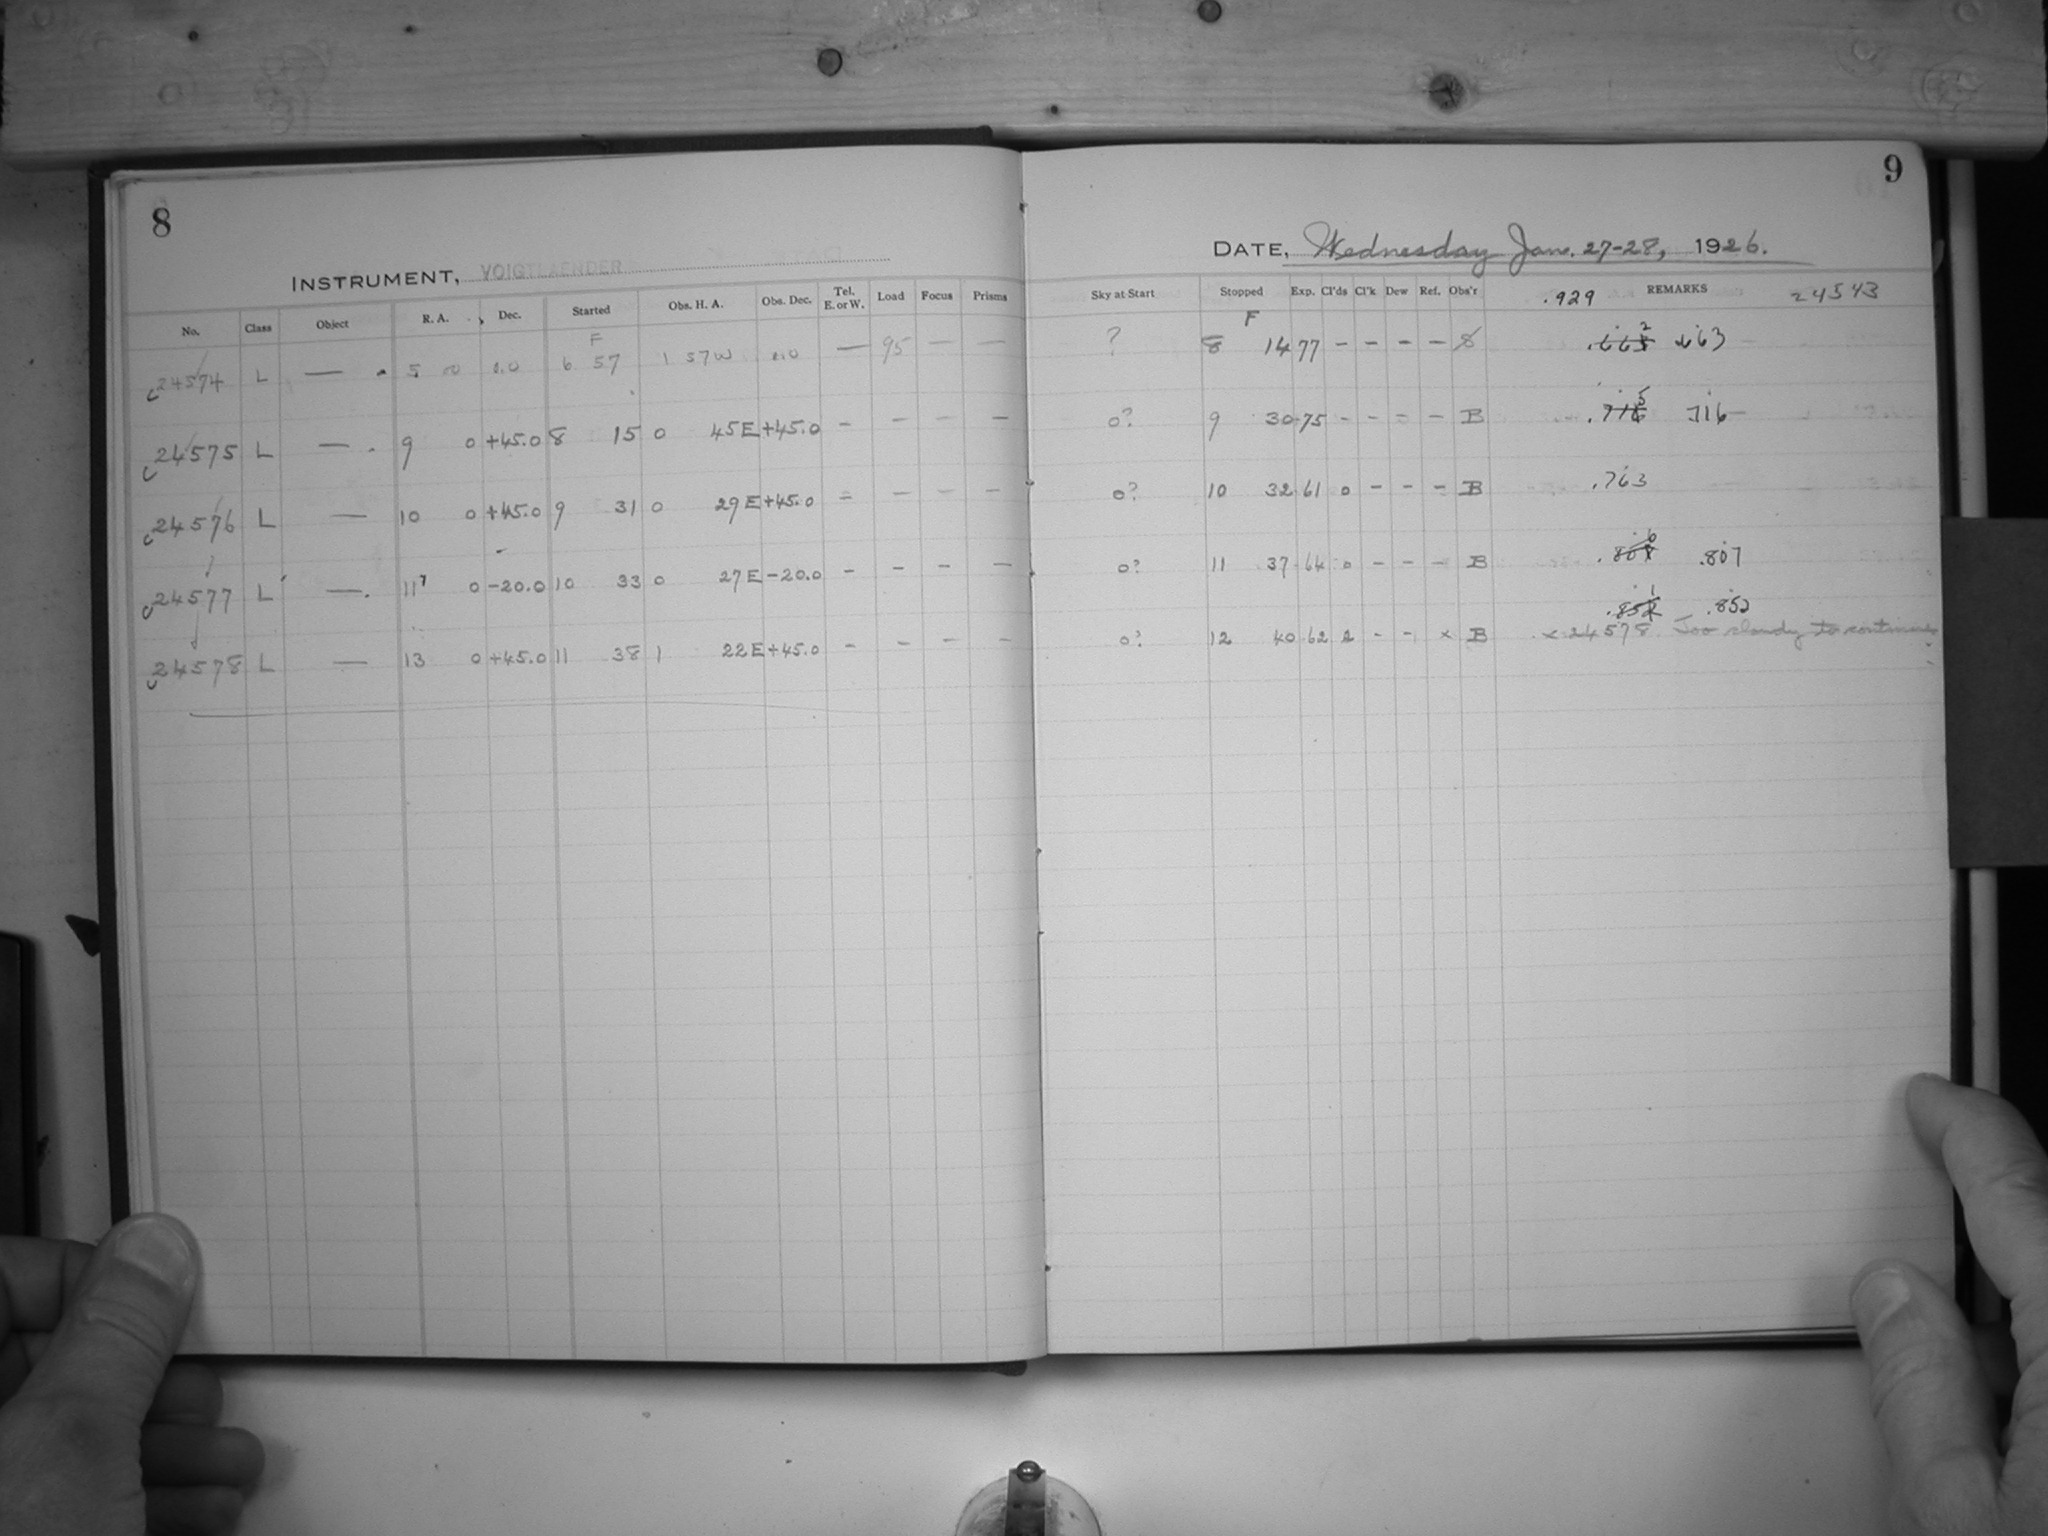 8
INSTRUMENT, VOIGTLAENDER
No. Class Object R. A. Dec. Started Obs. H. A. Obs. Dec. Tel. E. or W. Load Focus Prisms
F
24574 L — 5 00 0.0 6 57 1 57W 0.0 — 95 — —
24575 L — 9 0 +45.0 8 15 0 45E +45.0 - - - -
24576 L — 10 0 +45.0 9 31 0 29E +45.0 - - - -
24577 L — 11 0 -20.0 10 33 0 27E -20.0 - - - -
24578 L — 13 0 +45.0 11 38 1 22E +45.0 - - - -
9
DATE, Wednesday Jan. 27-28, 1926.
Sky at Start Stopped Exp. Cl'ds Cl'k Dew Ref. Obs'r .929 REMARKS 24543
F
? 8 14 77 - - - - .663
0? 9 30 75 - - - - B .716
0? 10 32 61 0 - - - B .763
0? 11 37 64 0 - - - B .807
.852
0? 12 40 62 2 - - x B x 24578 Too cloudy to continue